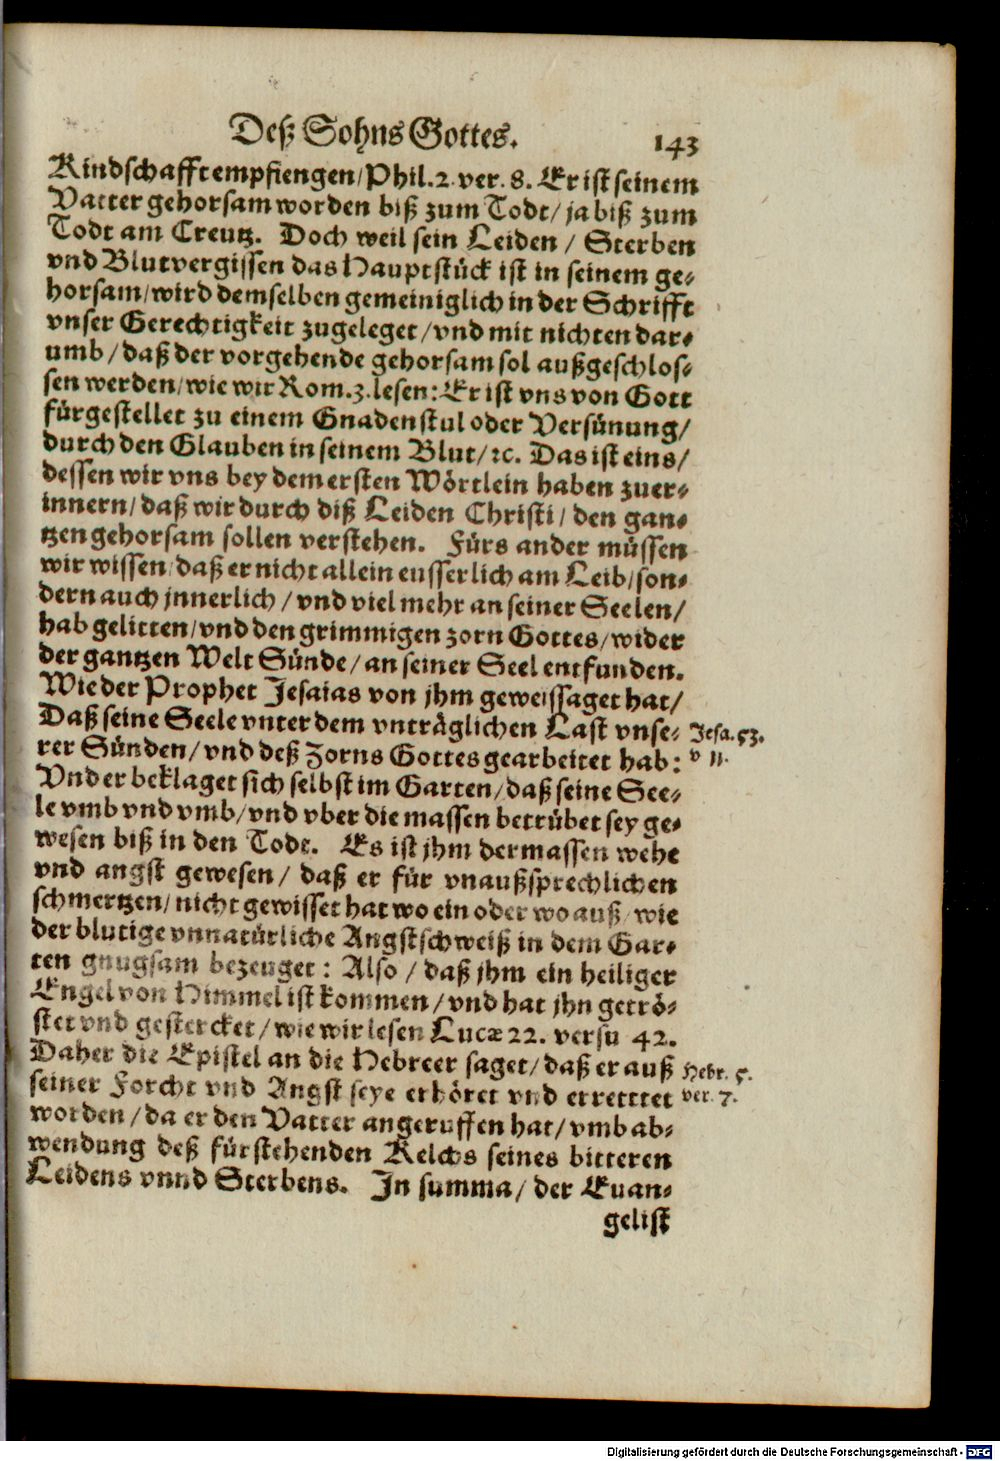 Deß Sohns Gottes. 143
Kindschafft empfiengen/ Phil. 2. ver. 8. Er ist seinem
Vatter gehorsam worden biß zum Todt/ ja biß zum
Todt am Creutz. Doch weil sein Leiden / Sterben
vnd Blutvergissen das Hauptstück ist in seinem ge-
horsam/ wird demselben gemeiniglich in der Schrifft
vnser Gerechtigkeit zugeleget / vnd mit nichten dar-
umb / daß der vorgehende gehorsam sol außgeschlos-
sen werden/ wie wir Rom. 3. lesen: Er ist vns von Gott
fürgestellet zu einem Gnadenstul oder Versünung/
durch den Glauben in seinem Blut/ ꝛc. Das ist eins/
dessen wir vns bey dem ersten Wörtlein haben zuer-
innern/ daß wir durch diß Leiden Christi/ den gan-
tzen gehorsam sollen verstehen. Fürs ander müssen
wir wissen/ daß er nicht allein eusserlich am Leib/ son-
dern auch jnnerlich / vnd viel mehr an seiner Seelen/
hab gelitten/ vnd den grimmigen zorn Gottes/ wider
der gantzen Welt Sünde/ an seiner Seel entfunden.
Wie der Prophet Jesaias von jhm geweissaget hat/
Daß seine Seele vnter dem vnträglichen Last vnse- Jesa. 53.
rer Sünden/ vnd deß Zorns Gottes gearbeitet hab: v 11.
Vnd er beklaget sich selbst im Garten/ daß seine See-
le vmb vnd vmb/ vnd vber die massen betrübet sey ge-
wesen biß in den Todt. Es ist jhm dermassen wehe
vnd angst gewesen/ daß er für vnaußsprechlichen
schmertzen/ nicht gewisset hat wo ein oder wo auß/ wie
der blutige vnnatürliche Angstschweiß in dem Gar-
ten gnugsam bezeuget: Also / daß jhm ein heiliger
Engel von Himmel ist kommen/ vnd hat jhn getrö-
stet vnd gestercket/ wie wir lesen Lucæ 22. versu 42.
Daher die Epistel an die Hebreer saget/ daß er auß Hebr. 5.
seiner Forcht vnd Angst seye erhöret vnd erretttet ver. 7.
worden/ da er den Vatter angeruffen hat/ vmb ab-
wendung deß fürstehenden Kelchs seines bitteren
Leidens vnnd Sterbens. In summa/ der Euan-
gelist
Digitalisierung gefördert durch die Deutsche Forschungsgemeinschaft - DFG